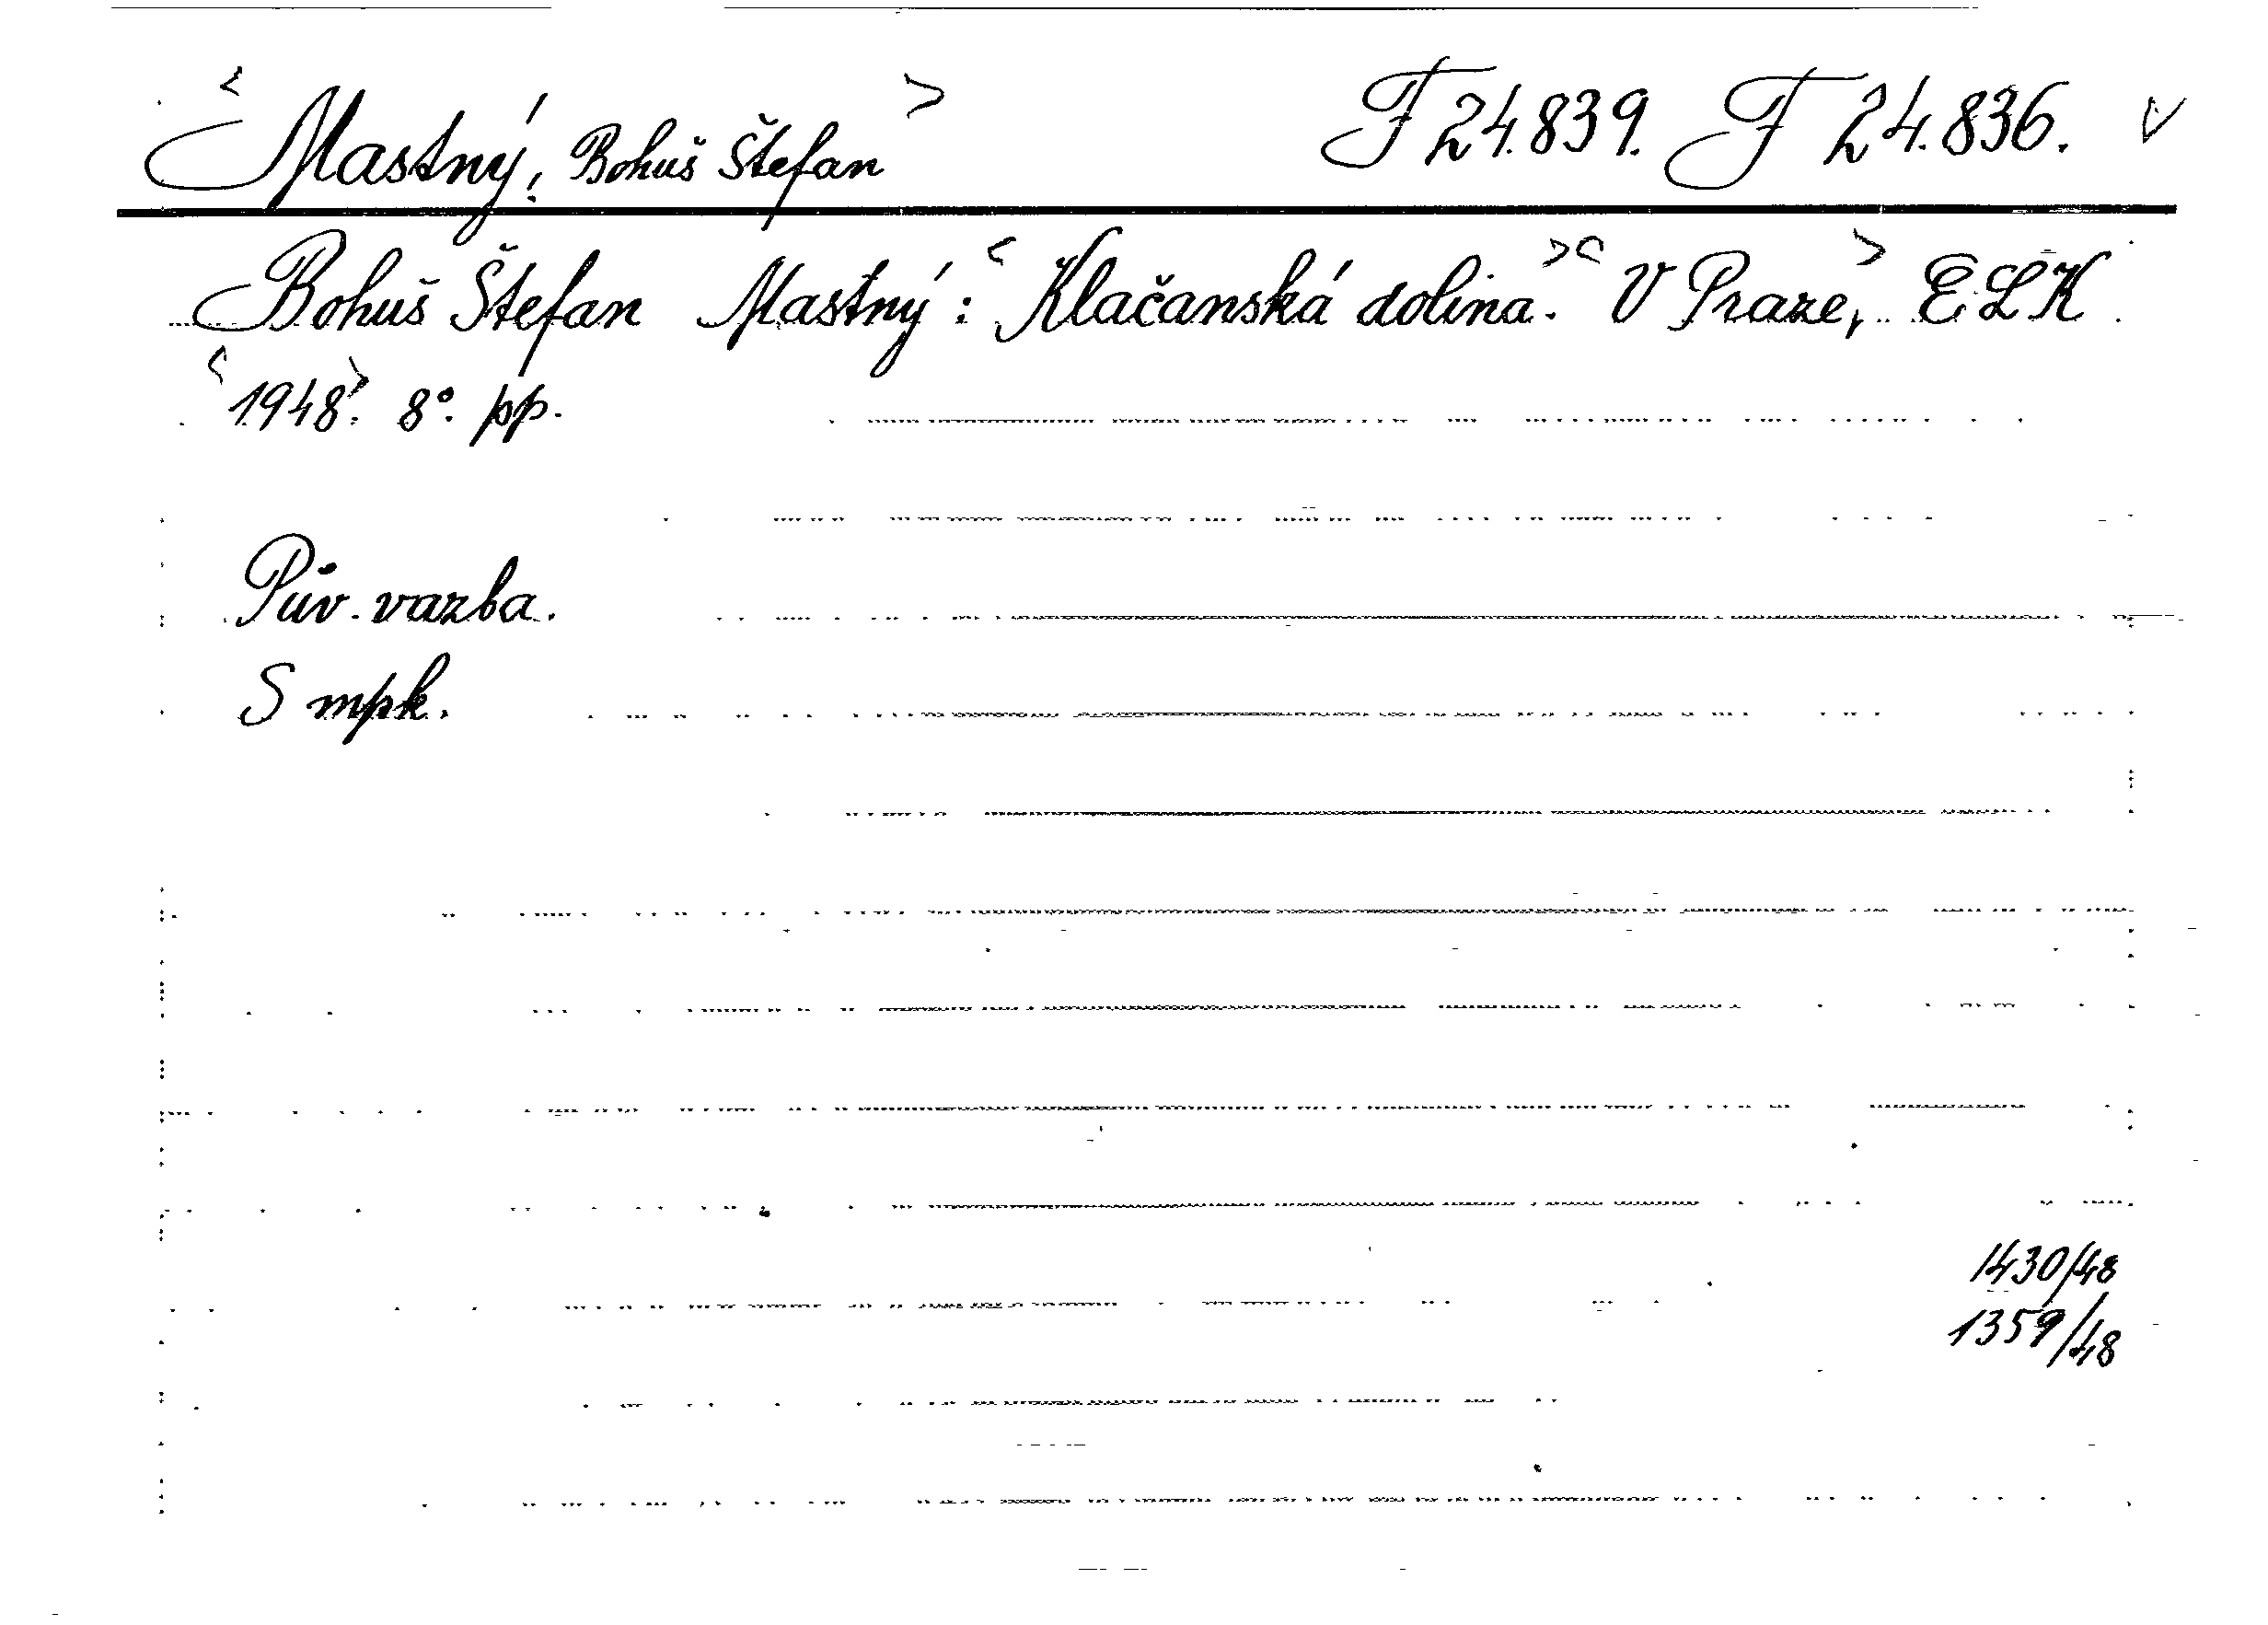 <Mastný, Bohuš Štefan> F 24.839. F 24.836. v
Bohuš Štefan Mastný: <Klačanská dolina.> <V Praze,> ELK
<1948>. 8°. pp.
Pův. vazba.
S mpk.
1430/48
1359/48